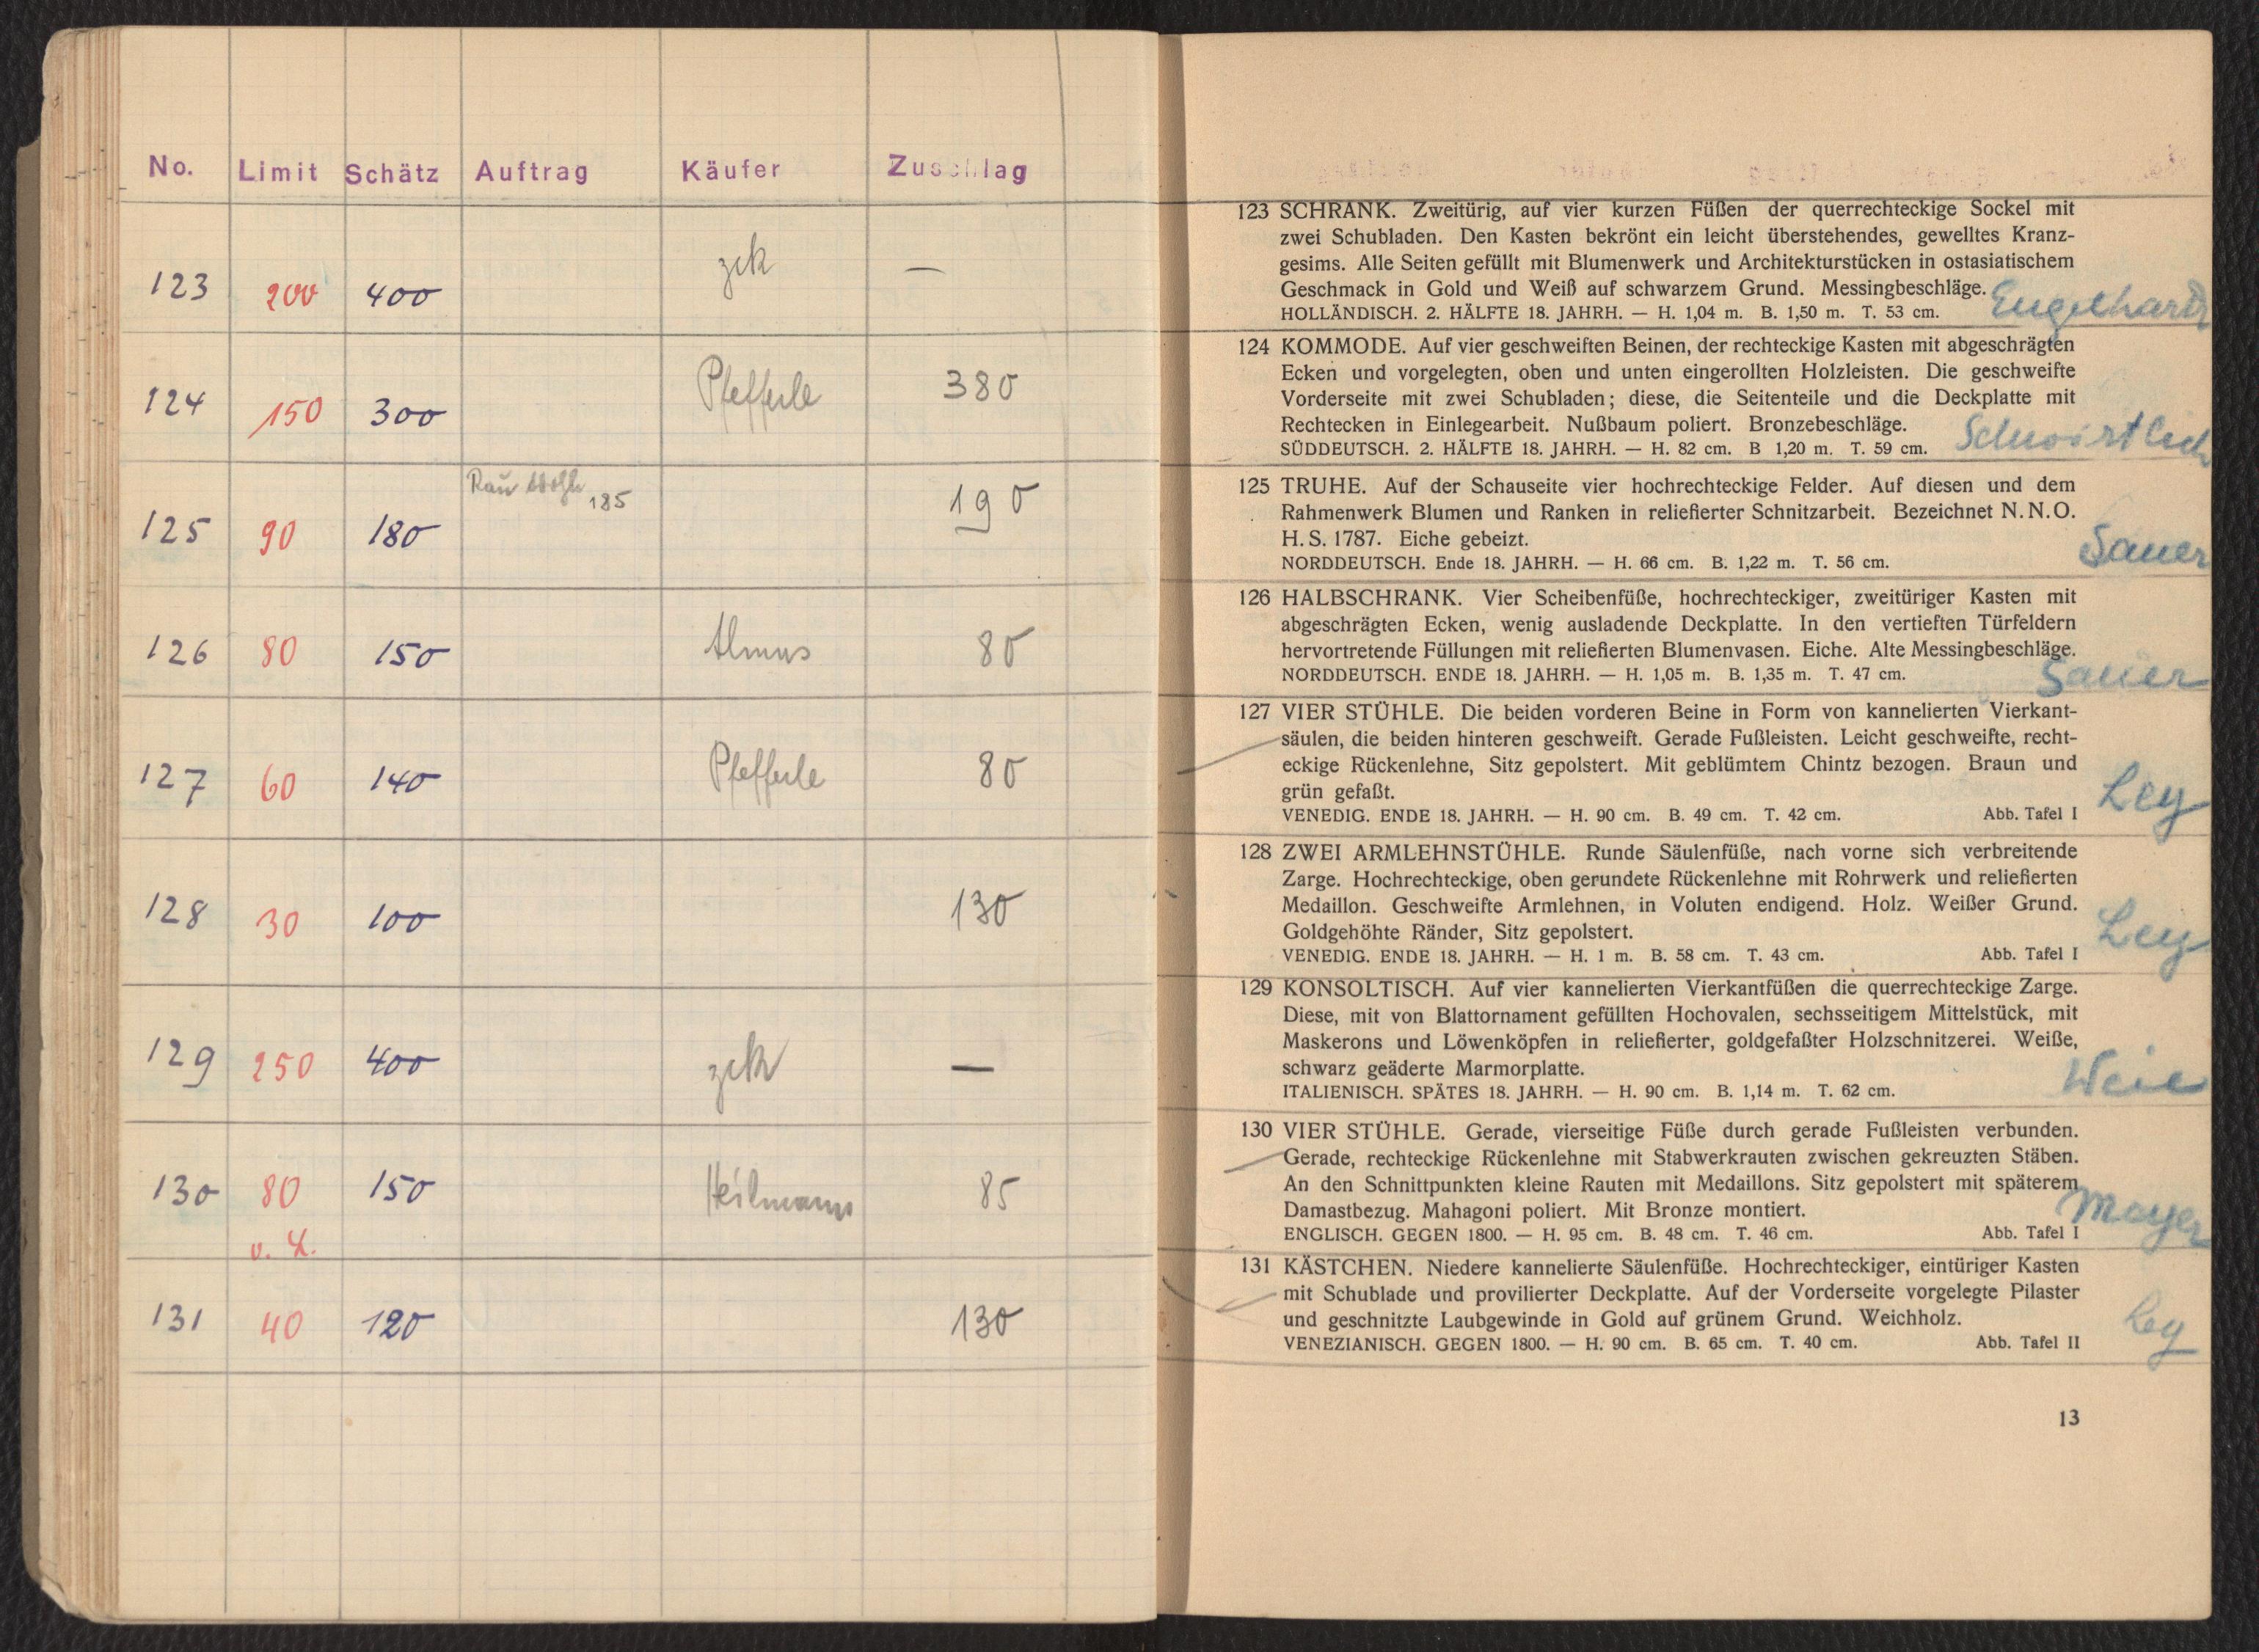 No. Limit Schätz Auftrag Käufer Zuschlag
123 200 400 zck —
124 150 300 Pfefferle 380
125 90 180 Rau 185 190
126 80 150 Almus 80
127 60 140 Pfefferle 80
128 30 100 130
129 250 400 zck —
130 80 150 Heilmann 85
v. L.
131 40 120 130
123 SCHRANK. Zweitürig, auf vier kurzen Füßen der querrechteckige Sockel mit
zwei Schubladen. Den Kasten bekrönt ein leicht überstehendes, gewelltes Kranz-
gesims. Alle Seiten gefüllt mit Blumenwerk und Architekturstücken in ostasiatischem
Geschmack in Gold und Weiß auf schwarzem Grund. Messingbeschläge.
HOLLÄNDISCH. 2. HÄLFTE 18. JAHRH. — H. 1,04 m. B. 1,50 m. T. 53 cm. Engelhardt
124 KOMMODE. Auf vier geschweiften Beinen, der rechteckige Kasten mit abgeschrägten
Ecken und vorgelegten, oben und unten eingerollten Holzleisten. Die geschweifte
Vorderseite mit zwei Schubladen; diese, die Seitenteile und die Deckplatte mit
Rechtecken in Einlegearbeit. Nußbaum poliert. Bronzebeschläge.
SÜDDEUTSCH. 2. HÄLFTE 18. JAHRH. — H. 82 cm. B 1,20 m. T. 59 cm.
125 TRUHE. Auf der Schauseite vier hochrechteckige Felder. Auf diesen und dem
Rahmenwerk Blumen und Ranken in reliefierter Schnitzarbeit. Bezeichnet N. N. O.
H. S. 1787. Eiche gebeizt. Sauer
NORDDEUTSCH. Ende 18. JAHRH. — H. 66 cm. B. 1,22 m. T. 56 cm.
126 HALBSCHRANK. Vier Scheibenfüße, hochrechteckiger, zweitüriger Kasten mit
abgeschrägten Ecken, wenig ausladende Deckplatte. In den vertieften Türfeldern
hervortretende Füllungen mit reliefierten Blumenvasen. Eiche. Alte Messingbeschläge.
NORDDEUTSCH. ENDE 18. JAHRH. — H. 1,05 m. B. 1,35 m. T. 47 cm. Sauer
127 VIER STÜHLE. Die beiden vorderen Beine in Form von kannelierten Vierkant-
säulen, die beiden hinteren geschweift. Gerade Fußleisten. Leicht geschweifte, recht-
eckige Rückenlehne, Sitz gepolstert. Mit geblümtem Chintz bezogen. Braun und
grün gefaßt. Ley
VENEDIG. ENDE 18. JAHRH. — H. 90 cm. B. 49 cm. T. 42 cm. Abb. Tafel I
128 ZWEI ARMLEHNSTÜHLE. Runde Säulenfüße, nach vorne sich verbreitende
Zarge. Hochrechteckige, oben gerundete Rückenlehne mit Rohrwerk und reliefierten
Medaillon. Geschweifte Armlehnen, in Voluten endigend. Holz. Weißer Grund.
Goldgehöhte Ränder, Sitz gepolstert. Ley
VENEDIG. ENDE 18. JAHRH. — H. 1 m. B. 58 cm. T. 43 cm. Abb. Tafel I
129 KONSOLTISCH. Auf vier kannelierten Vierkantfüßen die querrechteckige Zarge.
Diese, mit von Blattornament gefüllten Hochovalen, sechsseitigem Mittelstück, mit
Maskerons und Löwenköpfen in reliefierter, goldgefaßter Holzschnitzerei. Weiße,
schwarz geäderte Marmorplatte.
ITALIENISCH. SPÄTES 18. JAHRH. — H. 90 cm. B. 1,14 m. T. 62 cm.
130 VIER STÜHLE. Gerade, vierseitige Füße durch gerade Fußleisten verbunden.
Gerade, rechteckige Rückenlehne mit Stabwerkrauten zwischen gekreuzten Stäben.
An den Schnittpunkten kleine Rauten mit Medaillons. Sitz gepolstert mit späterem
Damastbezug. Mahagoni poliert. Mit Bronze montiert. Mayer
ENGLISCH. GEGEN 1800. — H. 95 cm. B. 48 cm. T. 46 cm. Abb. Tafel I
131 KÄSTCHEN. Niedere kannelierte Säulenfüße. Hochrechteckiger, eintüriger Kasten
mit Schublade und provilierter Deckplatte. Auf der Vorderseite vorgelegte Pilaster
und geschnitzte Laubgewinde in Gold auf grünem Grund. Weichholz. Ley
VENEZIANISCH. GEGEN 1800. — H. 90 cm. B. 65 cm. T. 40 cm. Abb. Tafel II
13